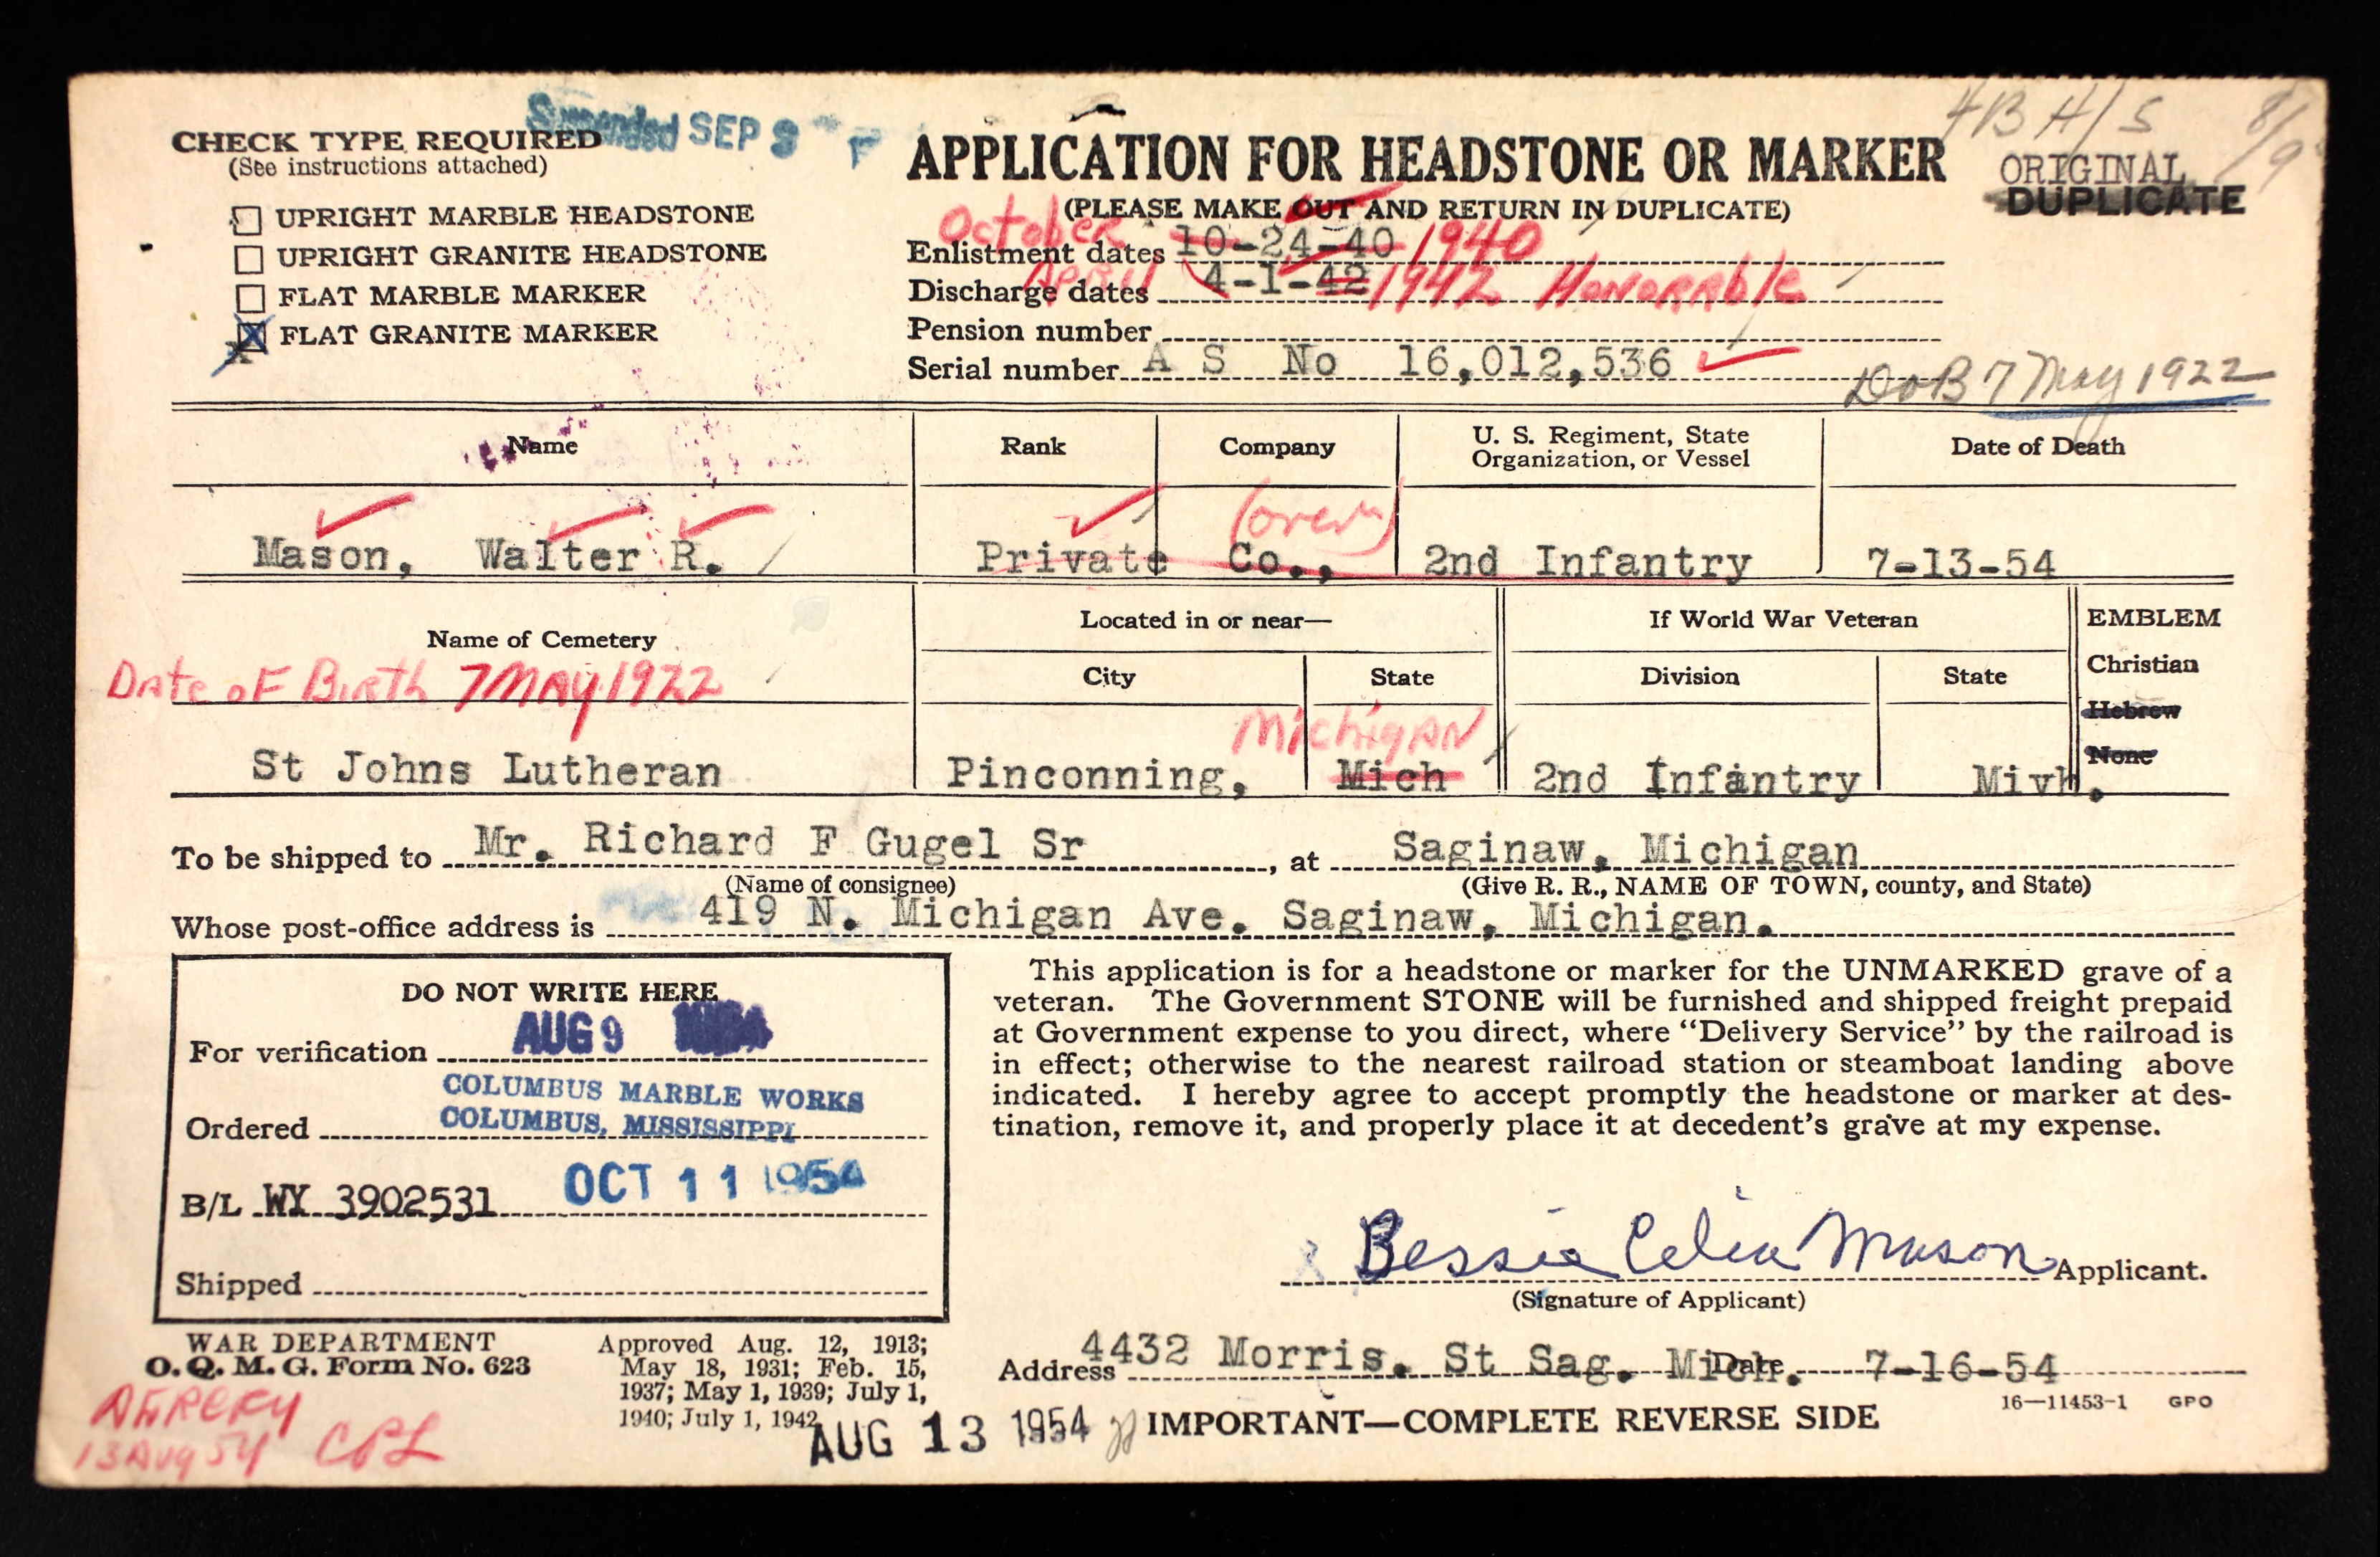 Suspended SEP 9
4B H/S 8/9
CHECK TYPE REQUIRED
(See instructions attached)
UPRIGHT MARBLE HEADSTONE
UPRIGHT GRANITE HEADSTONE
FLAT MARBLE MARKER
X FLAT GRANITE MARKER
APPLICATION FOR HEADSTONE OR MARKER
ORIGINAL
DUPLICATE
(PLEASE MAKE OUT AND RETURN IN DUPLICATE)
October
Enlistment dates 10-24-40 1940
APRIL
Discharge dates 4-1-42 1942 Honorable
Pension number
Serial number A S No 16,012,536
DoB 7 May 1922
Name
Rank
Company
U. S. Regiment, State
Organization, or Vessel
Date of Death
(over)
Mason, Walter R.
Private
Co.,
2nd Infantry
7-13-54
Name of Cemetery
Located in or near—
If World War Veteran
EMBLEM
Date of Birth 7 May 1922
City
State
Division
State
Christian
Hebrew
None
Michigan
St Johns Lutheran
Pinconning,
Mich
2nd Infantry
Mivh.
To be shipped to Mr. Richard F Gugel Sr, at Saginaw, Michigan
(Name of consignee)
(Give R. R., NAME OF TOWN, county, and State)
Whose post-office address is 419 N. Michigan Ave. Saginaw, Michigan.
DO NOT WRITE HERE
For verification AUG 9 1954
COLUMBUS MARBLE WORKS
Ordered COLUMBUS, MISSISSIPPI
B/L WY 3902531 OCT 11 1954
Shipped
This application is for a headstone or marker for the UNMARKED grave of a
veteran. The Government STONE will be furnished and shipped freight prepaid
at Government expense to you direct, where “Delivery Service” by the railroad is
in effect; otherwise to the nearest railroad station or steamboat landing above
indicated. I hereby agree to accept promptly the headstone or marker at des-
tination, remove it, and properly place it at decedent's grave at my expense.
Bessie Celia Mason Applicant.
(Signature of Applicant)
Address 4432 Morris. St Sag. Mich. Date 7-16-54
WAR DEPARTMENT
O. Q. M. G. Form No. 623
Approved Aug. 12, 1913;
May 18, 1931; Feb. 15,
1937; May 1, 1939; July 1,
1940; July 1, 1942
13 Aug 54 CPL
AUG 13 1954
IMPORTANT—COMPLETE REVERSE SIDE
16—11453-1 GPO